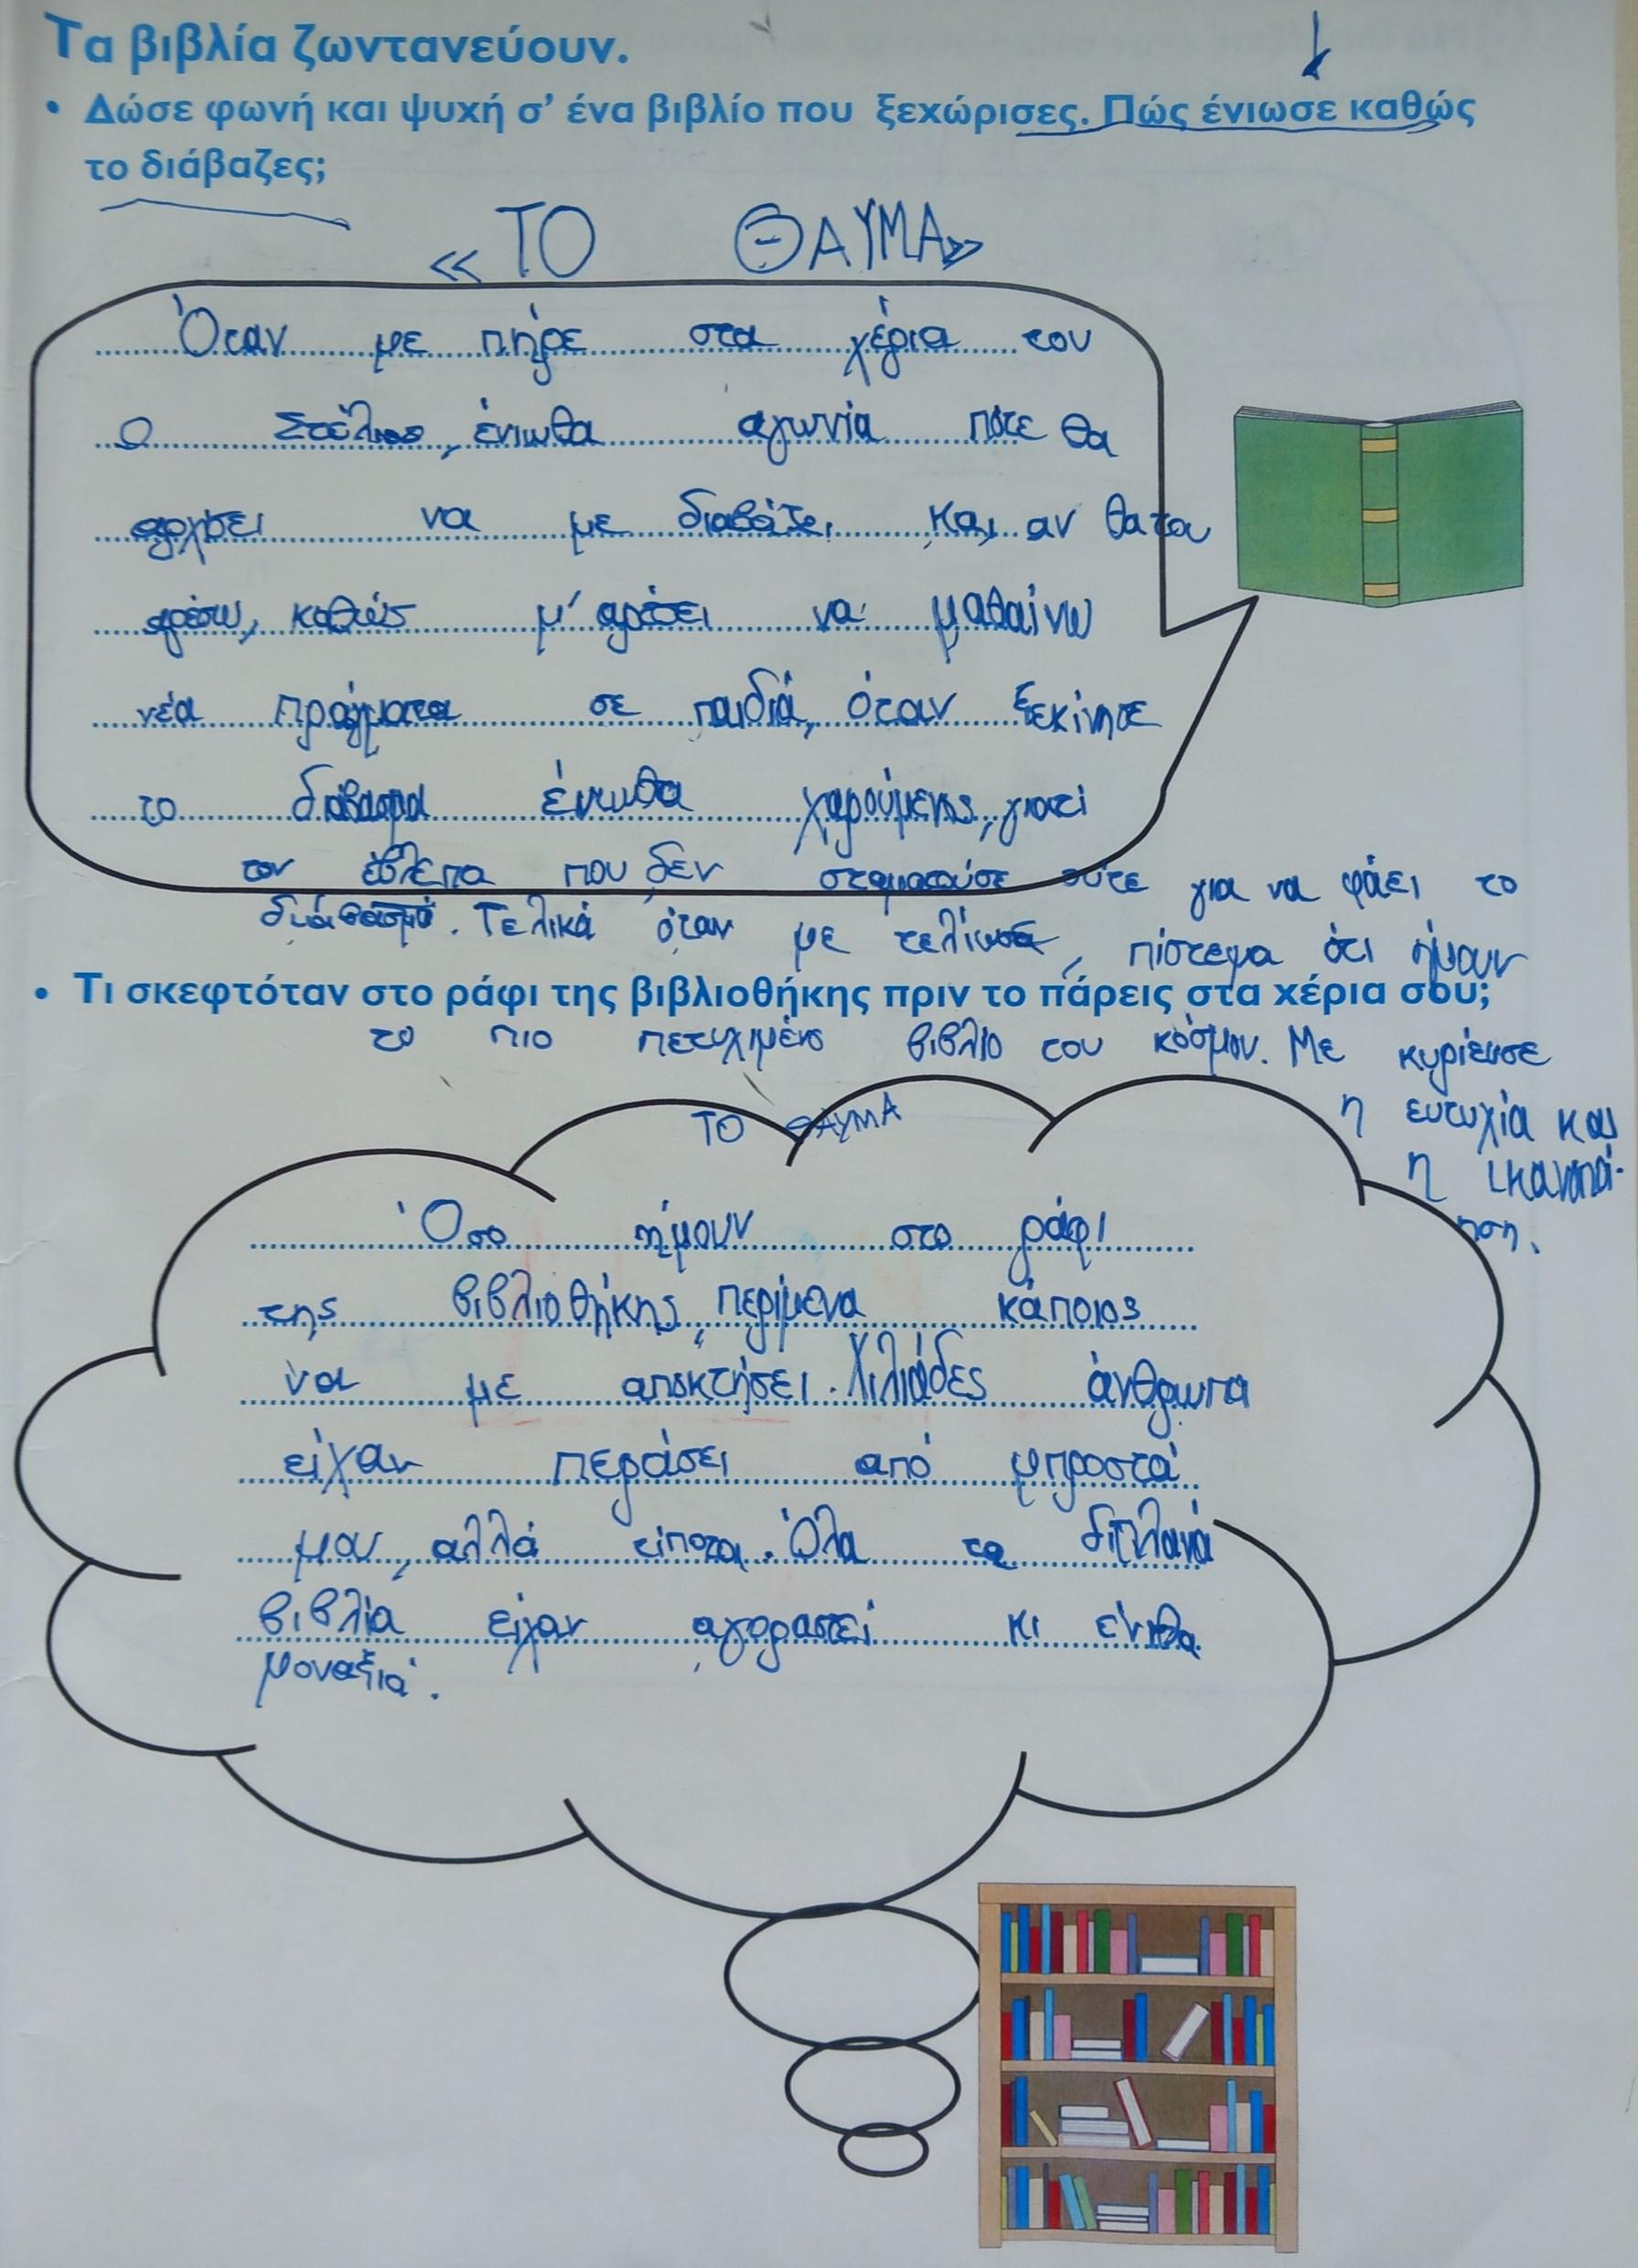 Τα βιβλία ζωντανεύουν.
• Δώσε φωνή και ψυχή σ' ένα βιβλίο που ξεχώρισες. Πώς ένιωσε καθώς
το διάβαζες;
«ΤΟ ΘΑΥΜΑ»
Όταν με πήρε στα χέρια του
ο Στέλιος, ένιωθα αγωνία πότε θα
αρχίσει να με διαβάζει. Και αν θα του
αρέσω, καθώς μ' αρέσει να μαθαίνω
νέα πράγματα σε παιδιά, όταν ξεκίνησε
το διάβασμα ένιωθα χαρούμενος, γιατί
τον έβλεπα που δεν σταματούσε ούτε για να φάει το
διάβασμά. Τελικά όταν με τελίωσε, πίστεψα ότι ήμουν
• Τι σκεφτόταν στο ράφι της βιβλιοθήκης πριν το πάρεις στα χέρια σου;
το πιο πετυχιμένο βιβλίο του κόσμου. Με κυρίευσε
η ευτυχία και
η ικανοποί-
ηση.
ΤΟ ΘΑΥΜΑ
Όσο ήμουν στο ράφι
της βιβλιοθήκης, περίμενα κάποιος
να με αποκτήσει. Χιλιάδες άνθρωποι
είχαν περάσει από μπροστά
μου, αλλά τίποτα. Όλα τα διπλανά
βιβλία είχαν αγοραστεί κι ένιωθα
μοναξιά.